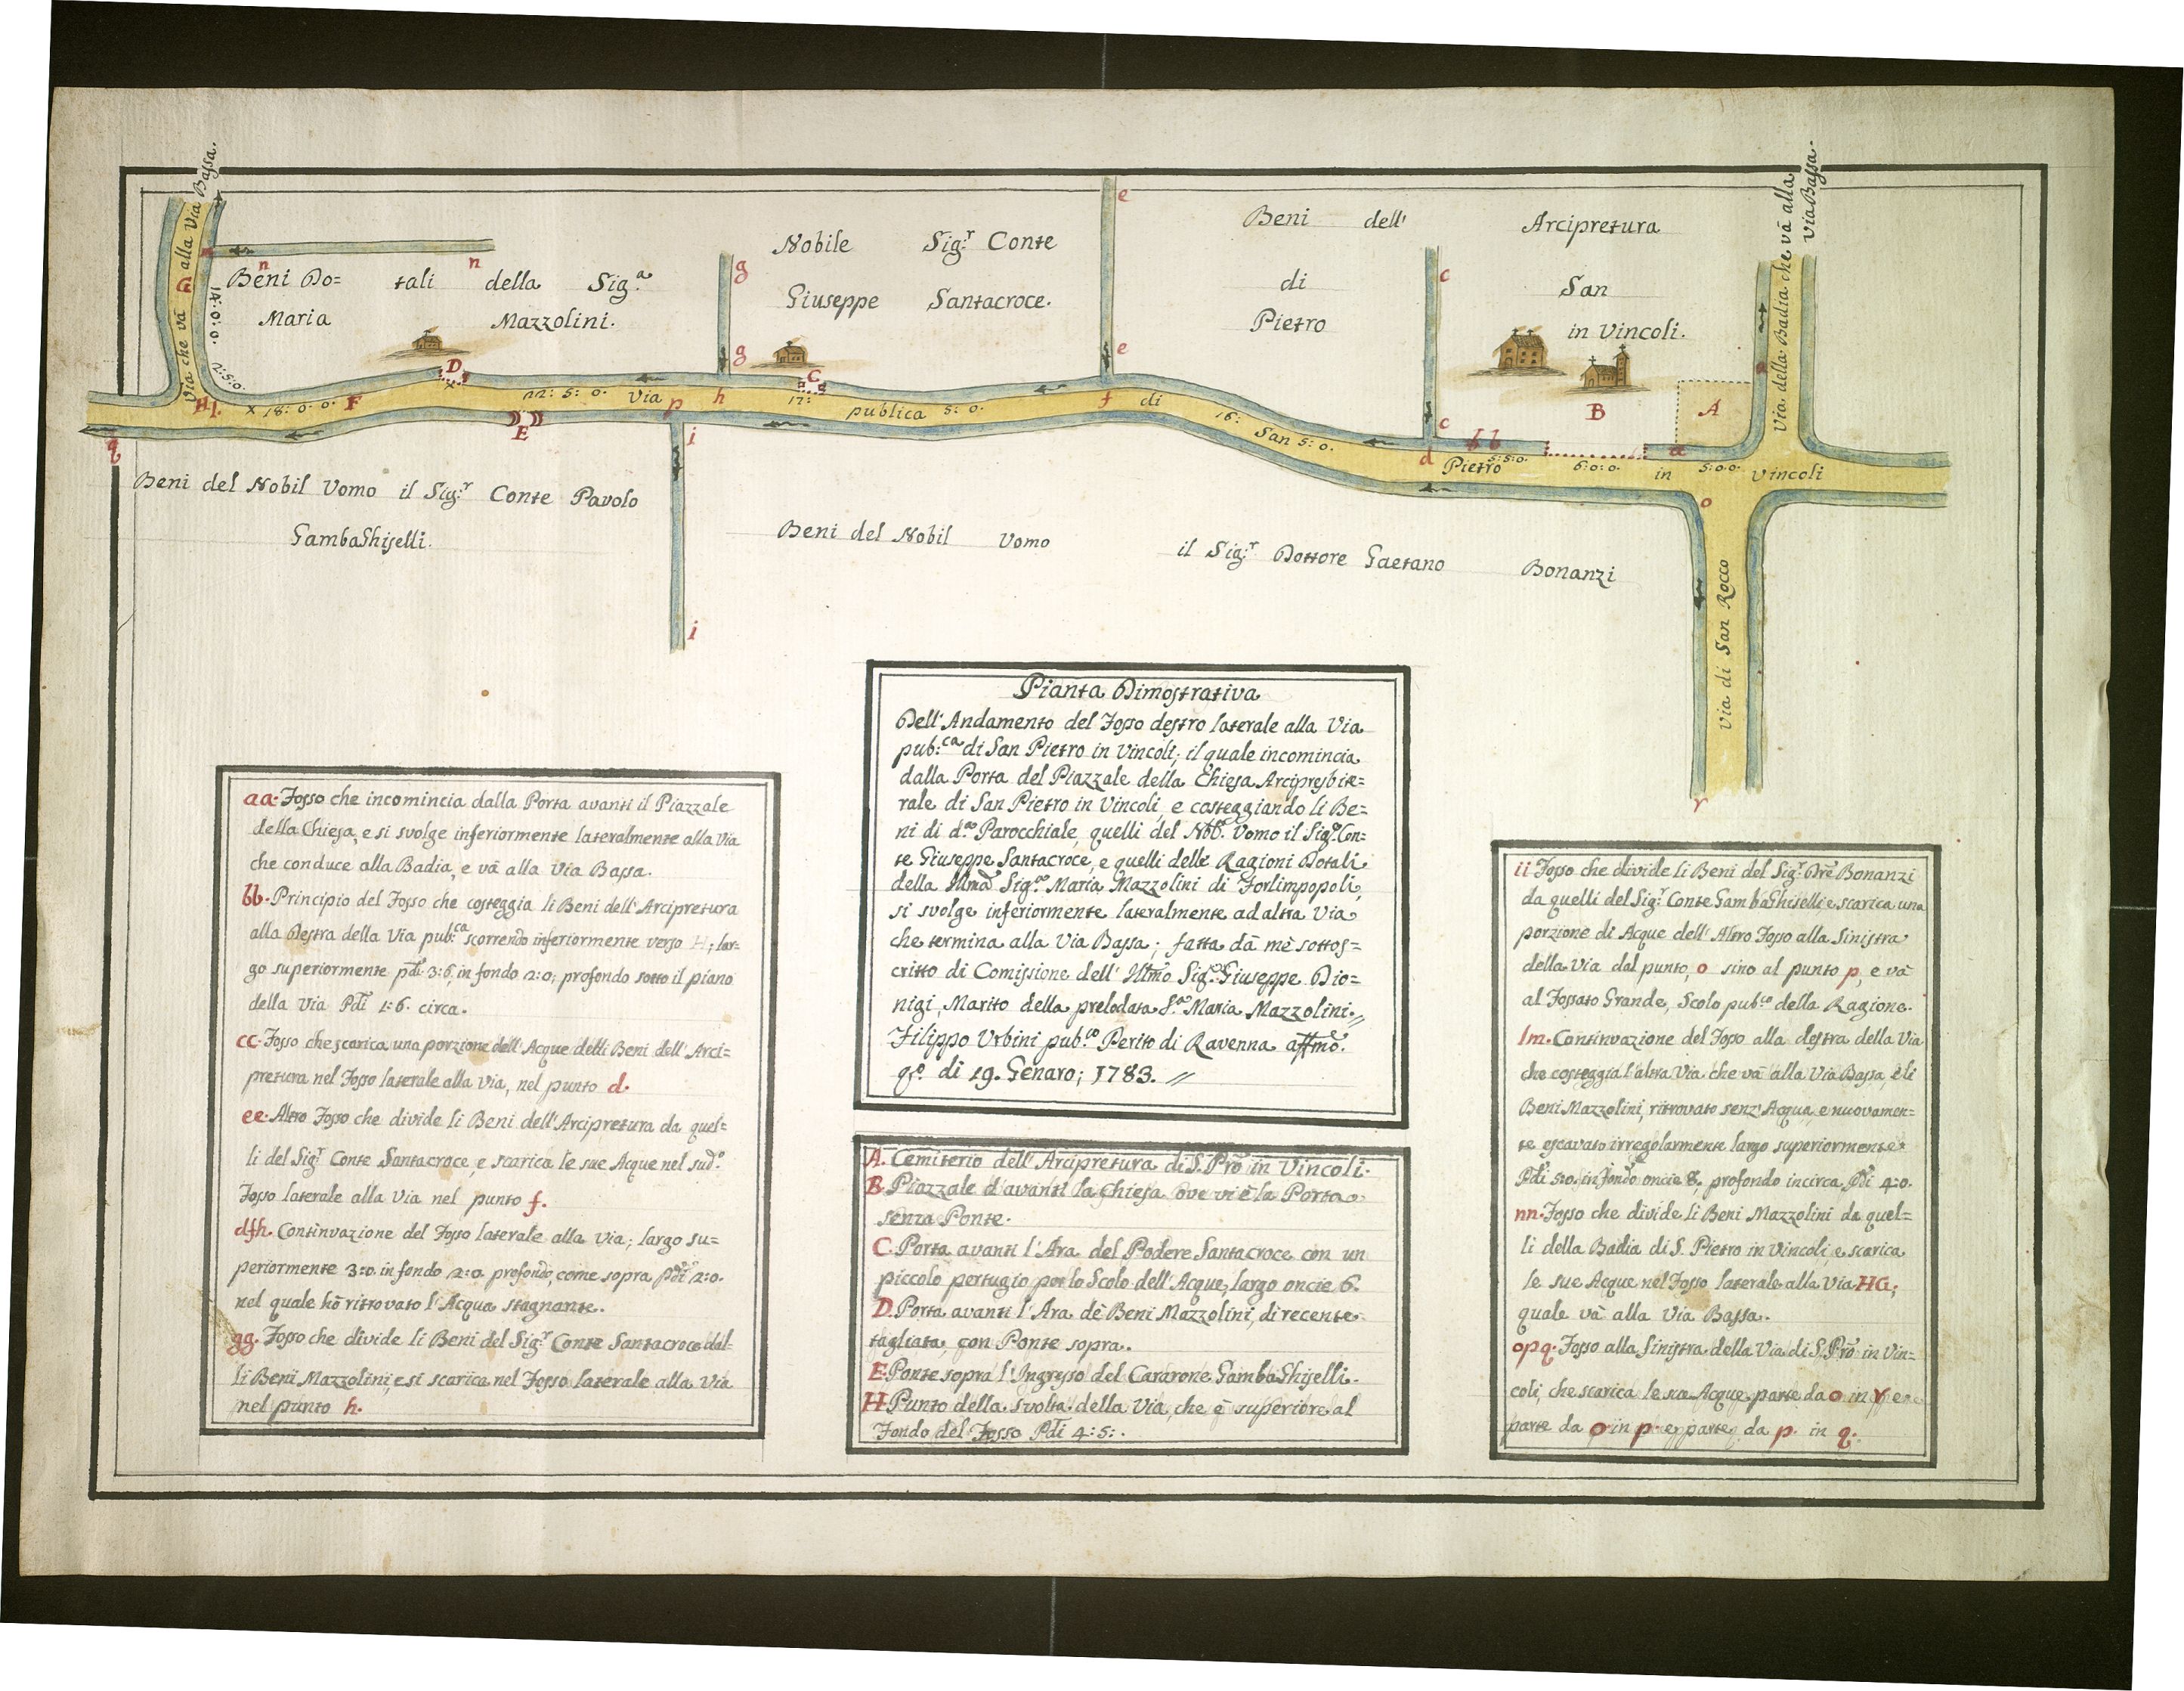 Via che vâ alla Via Bassa.
G
m
n
n
14:0:0.
2:5:0.
Beni Do= tali della Sig.a
Maria Mazzolini.
g
g
Nobile Sig:r Conte
Giuseppe Santacroce.
e
e
Beni dell' Arcipretura
di San
Pietro in Vincoli.
c
c
Via della Badia che vâ alla
Via Bassa.
a
A
B
a
D
C
H l. x 18: 0: 0. F x 22: 5: 0. Via p h 17: publica 5: 0. f di 16: San 5: 0. d Pietro 5:5:0. 6:0:0. in 5:0:0. Vincoli
b b
E
q
i
i
o
Beni del Nobil Vomo il Sig:r Conte Pavolo
GambaGhiselli.
Beni del Nobil Vomo il Sig:r Dottore Gaetano Bonanzi
Via di San Rocco
r
Pianta Dimostrativa
Dell' Andamento del Fosso destro laterale alla Via
pub:ca di San Pietro in Vincoli; il quale incomincia
dalla Porta del Piazzale della Chiesa Arcipresbite=
rale di San Pietro in Vincoli, e costeggiando li Be=
ni di d.a Parocchiale, quelli del Nob. Vomo il Sig.r Con=
te Giuseppe Santacroce, e quelli delle Ragioni Dotali
della Illma Sig.a Maria Mazzolini di Forlimpopoli,
si svolge inferiormente lateralmente ad altra Via
che termina alla Via Bassa; fatta dâ mè sottos=
critto di Comissione dell' Illmo Sig.r Giuseppe Dio=
nigi, Marito della prelodata S.a Maria Mazzolini.//
Filippo Urbini pub.co Perito di Ravenna affmo.
qs.o di 19. Genaro; 1783. //
aa. Fosso che incomincia dalla Porta avanti il Piazzale
della Chiesa, e si svolge inferiormente lateralmente alla Via
che conduce alla Badia, e vâ alla Via Bassa.
bb. Principio del Fosso che costeggia li Beni dell' Arcipretura
alla Destra della Via pub:ca scorrendo inferiormente verso H; lar=
go superiormente pdi 3:6, in fondo 2:0; profondo sotto il piano
della Via Pdi 1:6. circa.
cc. Fosso che scarica una porzione dell' Acque delli Beni dell' Arci=
pretura nel Fosso laterale alla Via, nel punto d.
ee. Altro Fosso che divide li Beni dell' Arcipretura da quel=
li del Sig.r Conte Santacroce, e scarica le sue Acque nel sud.o
Fosso laterale alla Via nel punto f.
dfh. Continvazione del Fosso laterale alla Via; largo su=
periormente 3:0. in fondo 2:0. profondo, come sopra pdi 2:0.
nel quale hô ritrovato l'Acqua stagnante.
gg. Fosso che divide li Beni del Sig.r Conte Santacroce dal=
li Beni Mazzolini, e si scarica nel Fosso laterale alla Via
nel punto h.
A. Cemiterio dell' Arcipretura di S. Pro in Vincoli.
B. Piazzale d'avanti la Chiesa ove vi è la Porta
senza Ponte.
C. Porta avanti l'Ara del Podere Santacroce con un
piccolo pertugio per lo Scolo dell' Acque, largo oncie 6.
D. Porta avanti l'Ara dè Beni Mazzolini, di recente
tagliata, con Ponte sopra.
E. Ponte sopra l'Ingresso del Cararone GambaGhiselli.
H. Punto della svolta della Via, che è superiore al
Fondo del Fosso Pdi 4:5:.
ii. Fosso che divide li Beni del Sig.r Dre Bonanzi
da quelli del Sig.r Conte GambaGhiselli e scarica una
porzione di Acque dell' Altro Fosso alla Sinistra
della Via dal punto, o sino al punto p, e vâ
al Fossato Grande, Scolo pub.co della Ragione.
lm. Continvazione del Fosso alla destra della Via
che costeggia l'altra Via che vâ alla Via Bassa, è li
Beni Mazzolini, ritrovato senz' Acqua, e nuovamen=
te escavato irregolarmente largo superiormente
Pdi 5:0. in fondo oncie 8, profondo incirca Pdi 4:0.
nn. Fosso che divide li Beni Mazzolini da quel=
li della Badia di S. Pietro in Vincoli, e scarica
le sue Acque nel Fosso laterale alla Via HG;
quale vâ alla Via Bassa.
opq. Fosso alla Sinistra della Via di S. Pro in Vin=
coli, che scarica le sue Acque parte da o in r e
parte da o in p. e parte da p. in q.